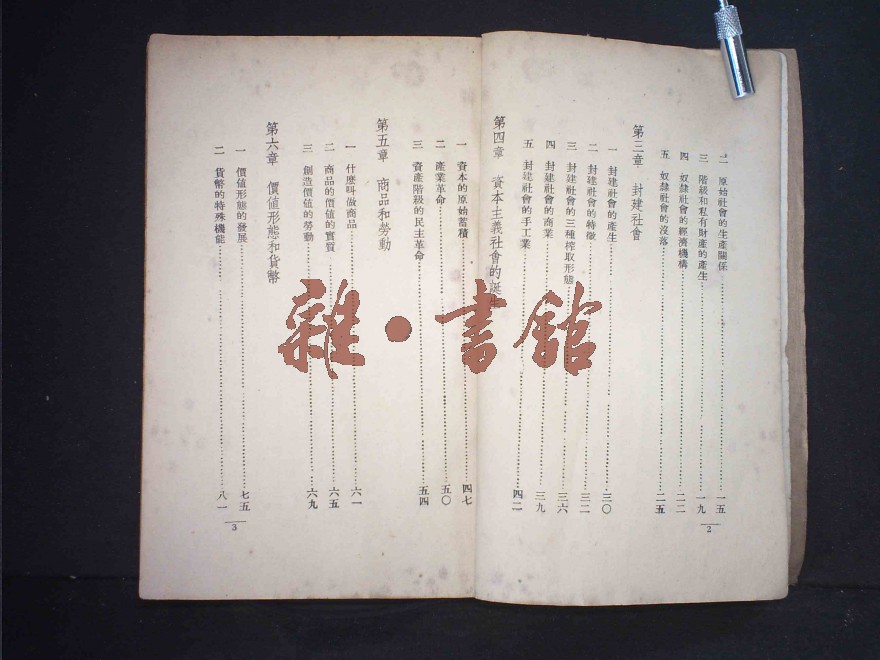 二 原始社會的生產關係 一五
三 階級和私有財產的產生 一九
四 奴隸社會的經濟機構 二二
五 奴隸社會的沒落 二五
第三章 封建社會
一 封建社會的產生 三〇
二 封建社會的特徵 三二
三 封建社會的三種榨取形態 三六
四 封建社會的商業 三九
五 封建社會的手工業 四二
2
第四章 資本主義社會的誕生
一 資本的原始蓄積 四七
二 產業革命 五〇
三 資產階級的民主革命 五四
第五章 商品和勞動
一 什麼叫做商品 六一
二 商品的價值的實質 六五
三 創造價值的勞動 六九
第六章 價值形態和貨幣
一 價值形態的發展 七五
二 貨幣的特殊機能 八一
3
雜·書館